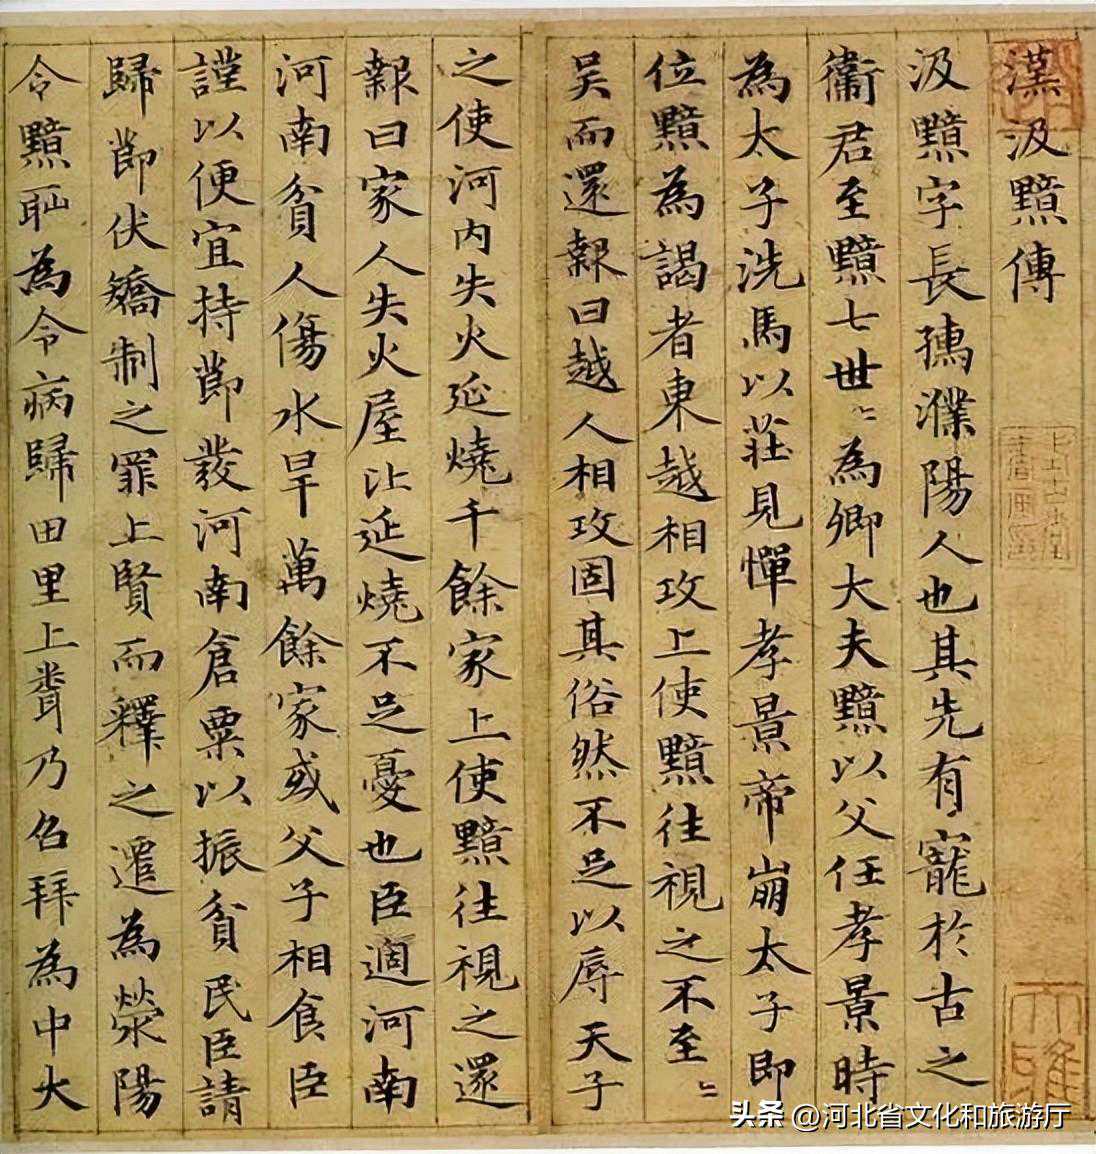 漢汲黯傳
汲黯字長孺濮陽人也其先有寵於古之
衞君至黯七世〻為卿大夫黯以父任孝景時
為太子洗馬以莊見憚孝景帝崩太子即
位黯為謁者東越相攻上使黯往視之不至〻
吴而還報曰越人相攻固其俗然不足以辱天子
之使河内失火延燒千餘家上使黯往視之還
報曰家人失火屋比延燒不足憂也臣過河南
河南貧人傷水旱萬餘家或父子相食臣
謹以便宜持節發河南倉粟以振貧民臣請
歸節伏矯制之罪上賢而釋之遷為滎陽
令黯恥為令病歸田里上聞乃召拜為中大
大雅
头条 @河北省文化和旅游厅